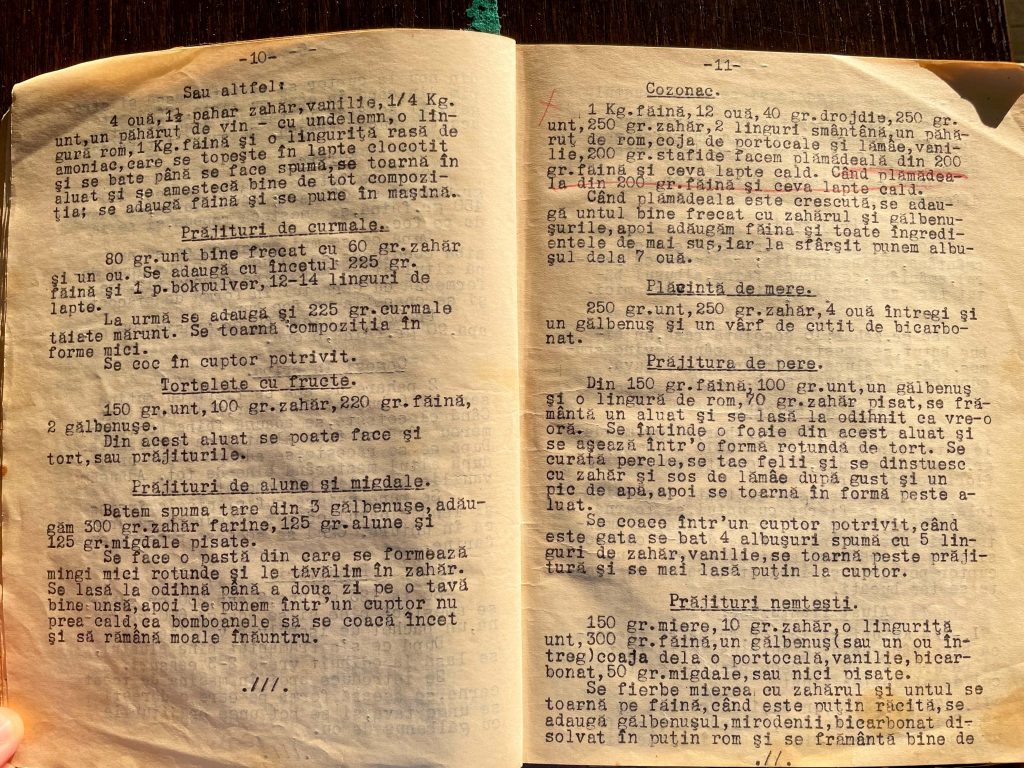 -10-
Sau altfel:
4 ouă, 1½ pahar zahăr, vanilie, 1/4 Kg.
unt, un păhăruț de vin - cu undelemn, o lin-
gură rom, 1 Kg. făină și o linguriță rasă de
amoniac, care se topește în lapte clocotit
și se bate până se face spumă, se toarnă în
aluat și se amestecă bine de tot compozi-
ția; se adaugă făina și se pune în mașină.
Prăjituri de curmale.
80 gr. unt bine frecat cu 60 gr. zahăr
și un ou. Se adaugă cu încetul 225 gr.
făină și 1 p. bokpulver, 12-14 linguri de
lapte.
La urmă se adaugă și 225 gr. curmale
tăiate mărunt. Se toarnă compoziția în
forme mici.
Se coc în cuptor potrivit.
Tortelete cu fructe.
150 gr. unt, 100 gr. zahăr, 220 gr. făină,
2 gălbenușe.
Din acest aluat se poate face și
tort, sau prăjiturile.
Prăjituri de alune și migdale.
Batem spuma tare din 3 gălbenușe, adău-
găm 300 gr. zahăr farine, 125 gr. alune și
125 gr. migdale pisate.
Se face o pastă din care se formează
mingi mici rotunde și le tăvălim în zahăr.
Se lasă la odihnă până a doua zi pe o tavă
bine unsă, apoi le punem într'un cuptor nu
prea cald, ca bomboanele să se coacă încet
și să rămână moale înăuntru.
.///.
-11-
Cozonac.
1 Kg. făină, 12 ouă, 40 gr. drojdie, 250 gr.
unt, 250 gr. zahăr, 2 linguri smântână, un păhă-
ruț de rom, coja de portocale și lămâe, vani-
lie, 200 gr. stafide facem plămădeală din 200
gr. făină și ceva lapte cald. Când plămădea-
la din 200 gr. făină și ceva lapte cald.
Când plămădeala este crescută, se adau-
gă untul bine frecat cu zahărul și gălbenu-
șurile, apoi adăugăm făina și toate ingredi-
entele de mai sus, iar la sfârșit punem albu-
șul dela 7 ouă.
Plăcintă de mere.
250 gr. unt, 250 gr. zahăr, 4 ouă întregi și
un gălbenuș și un vârf de cuțit de bicarbo-
nat.
Prăjitura de pere.
Din 150 gr. făină, 100 gr. unt, un gălbenuș
și o lingură de rom, 70 gr. zahăr pisat, se fră-
mântă un aluat și se lasă la odihnit ca vre-o
oră. Se întinde o foaie din acest aluat și
se așează într'o formă rotundă de tort. Se
curăță perele, se tae felii și se dinstuesc
cu zahăr și sos de lămâe după gust și un
pic de apă, apoi se toarnă în formă peste a-
luat.
Se coace într'un cuptor potrivit, când
este gata se bat 4 albușuri spumă cu 5 lin-
guri de zahăr, vanilie, se toarnă peste prăji-
tură și se mai lasă puțin la cuptor.
Prăjituri nemțești.
150 gr. miere, 10 gr. zahăr, o linguriță
unt, 300 gr. făină, un gălbenuș (sau un ou în-
treg) coaja dela o portocală, vanilie, bicar-
bonat, 50 gr. migdale, sau nici pisate.
Se fierbe mierea cu zahărul și untul se
toarnă pe făină, când este puțin răcită, se
adaugă gălbenușul, mirodenii, bicarbonat di-
solvat în puțin rom și se frământă bine de
.//.